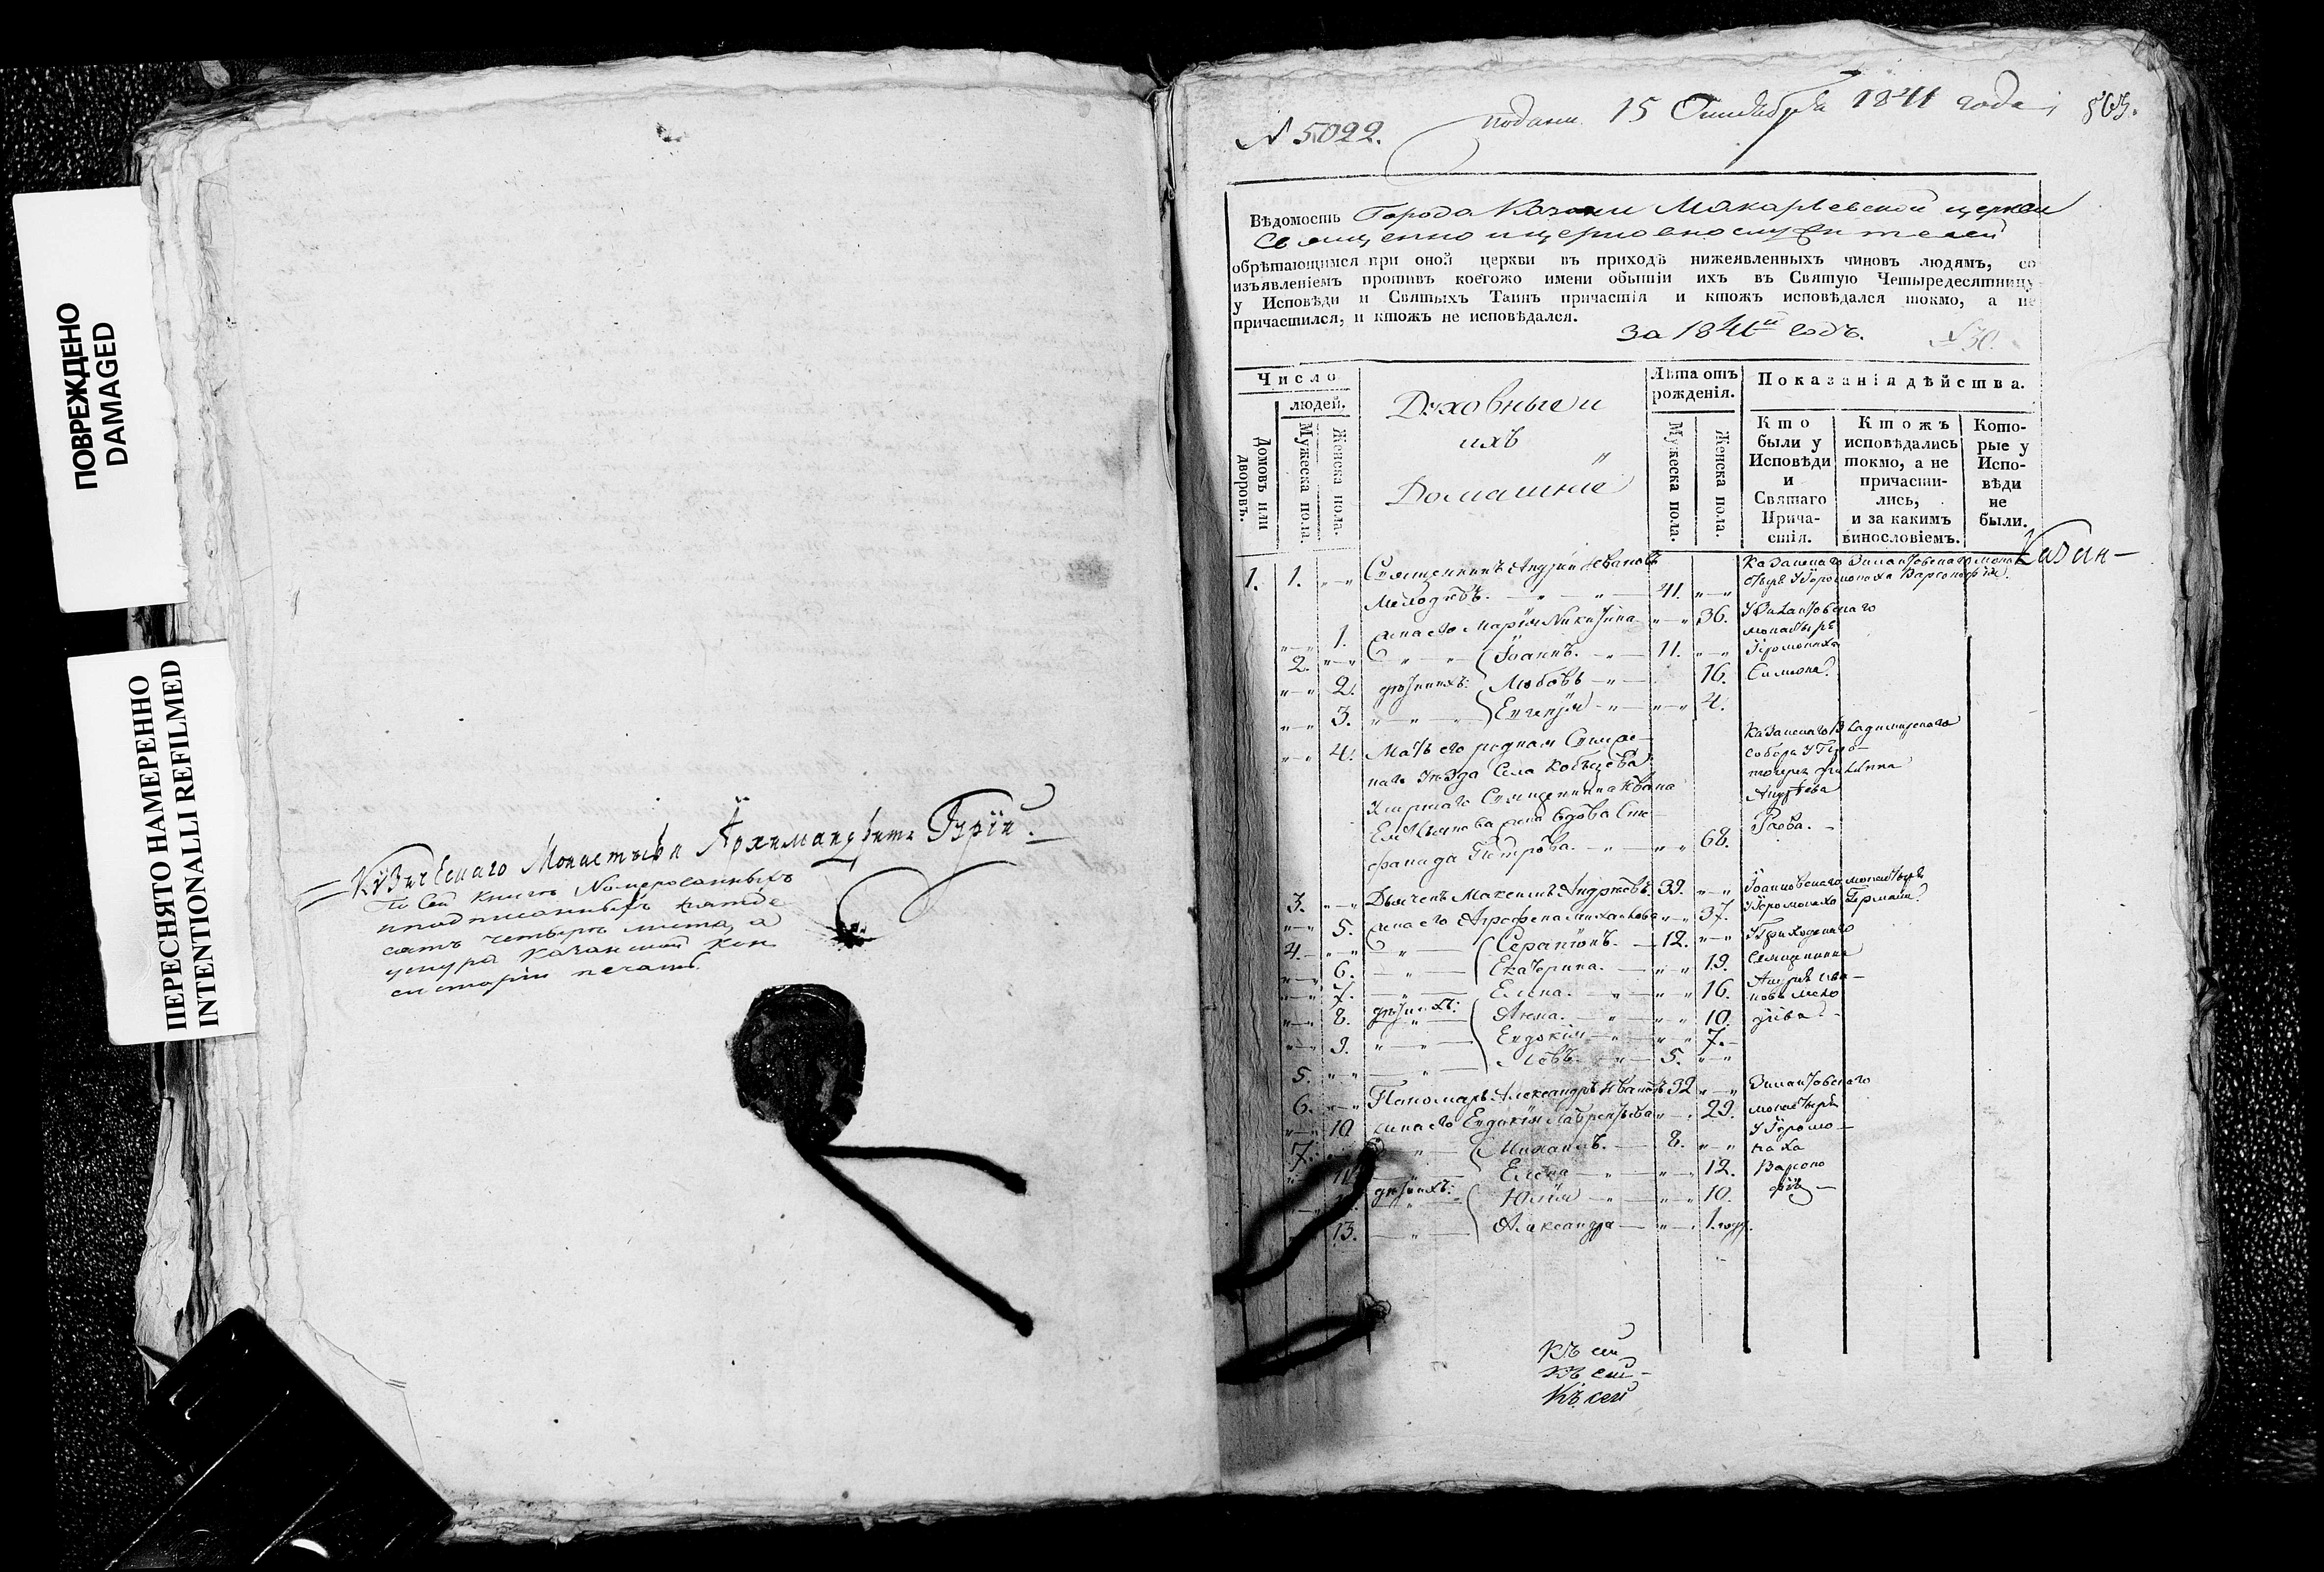 ПОВРЕЖДЕНО
DAMAGED
ПЕРЕСНЯТО НАМЕРЕННО
INTENTIONALLI REFILMED
Монастыря Архимандритъ Гурій.
По сей книгѣ Номерованныхъ
сятъ четыре листа, а
Казанской Кон
систоріи печать.
N 5022.
подани 15 Октября 1841 года
Вѣдомость Города Казани Макарьевской церкви
Священно и церковнослужителей
обрѣтающимся при оной церкви въ приходѣ нижеявленныхъ чиновъ людямъ, со
изъявленіемъ противъ коегожо имени бытіи ихъ въ Святую Четыредесятницу
у Исповѣди и Святыхъ Таинъ причастія и ктожъ исповѣдался токмо, а не
причастился, и ктожъ не исповѣдался.
За 1841й годъ.
Число
людей.
Домовъ или дворовъ.
Мужеска пола.
Женска пола.
Духовные и
ихъ
Домашніе
Лѣта отъ
рожденія.
Мужеска пола.
Женска пола.
Показанія дѣйства.
Кто
были у
Исповѣди
и
Святаго
Прича-
стія.
Ктожъ
исповѣдались
токмо, а не
причасти-
лись,
и за какимъ
винословіемъ.
Кото-
рые у
Испо-
вѣди
не
были.
Казан-
1. 1. Священникъ Андрей Ивановъ
41.
1. жена его Марія Никитина 36.
2. Іоаннъ. 11.
2. дѣти ихъ: Любовь 16.
3. Евгенія 4.
4. Мать его родная
наго уѣзда Села
умершаго Священника Ивана
жена вдова Сте
фанида Петрова. 68.
Казанскаго Зилантовскаго мона
Іеромонаха Варсонофія.
У Зилантовскаго
монастыря
Іеромонаха
Симона.
Казанскаго Владимірскаго
собора у Про-
тоіерея Филиппа
Андреева
3. Дьячекъ Максимъ Андреевъ 39.
5. жена его Агрофена Михайлова 37.
4. Серапіонъ. 12.
6. Екатерина. 19.
7. Елена. 16.
8. дѣти ихъ: Анна. 10.
9. Евдокія 7.
5. Левъ. 5.
Іоанновскаго монастыря
у Іеромонаха Германа.
У Приходскаго
Священника
Андрея Ива-
нова Мело
діева.
6. Пономарь Александръ Ивановъ 32
10 жена его Евдокія Лаврентьева 29.
7. Михаилъ. 8.
11. Елена 12.
дѣти ихъ: Юлія 10.
13. Александра 1. годъ.
Зилантовскаго
монастыря
у Іеромо-
наха
Варсоно
фія
Къ сей
Къ сей
Къ сей